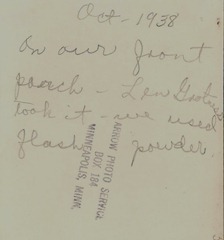 Oct - 1938
On our front
porch - Len
took it - we used
flash powder.
ARROW PHOTO SERVICE
BOX 184
MINNEAPOLIS, MINN.